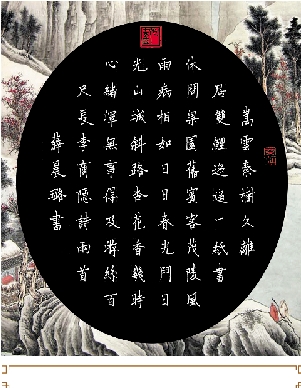 嵩雲秦樹久離
居雙鯉迢迢一紙書
休問梁園舊賓客茂陵風
雨病相如日日春光鬥日
光山城斜路杏花香幾時
心緒渾無事得及游絲百
尺長李商隱詩兩首
薛晨璐書